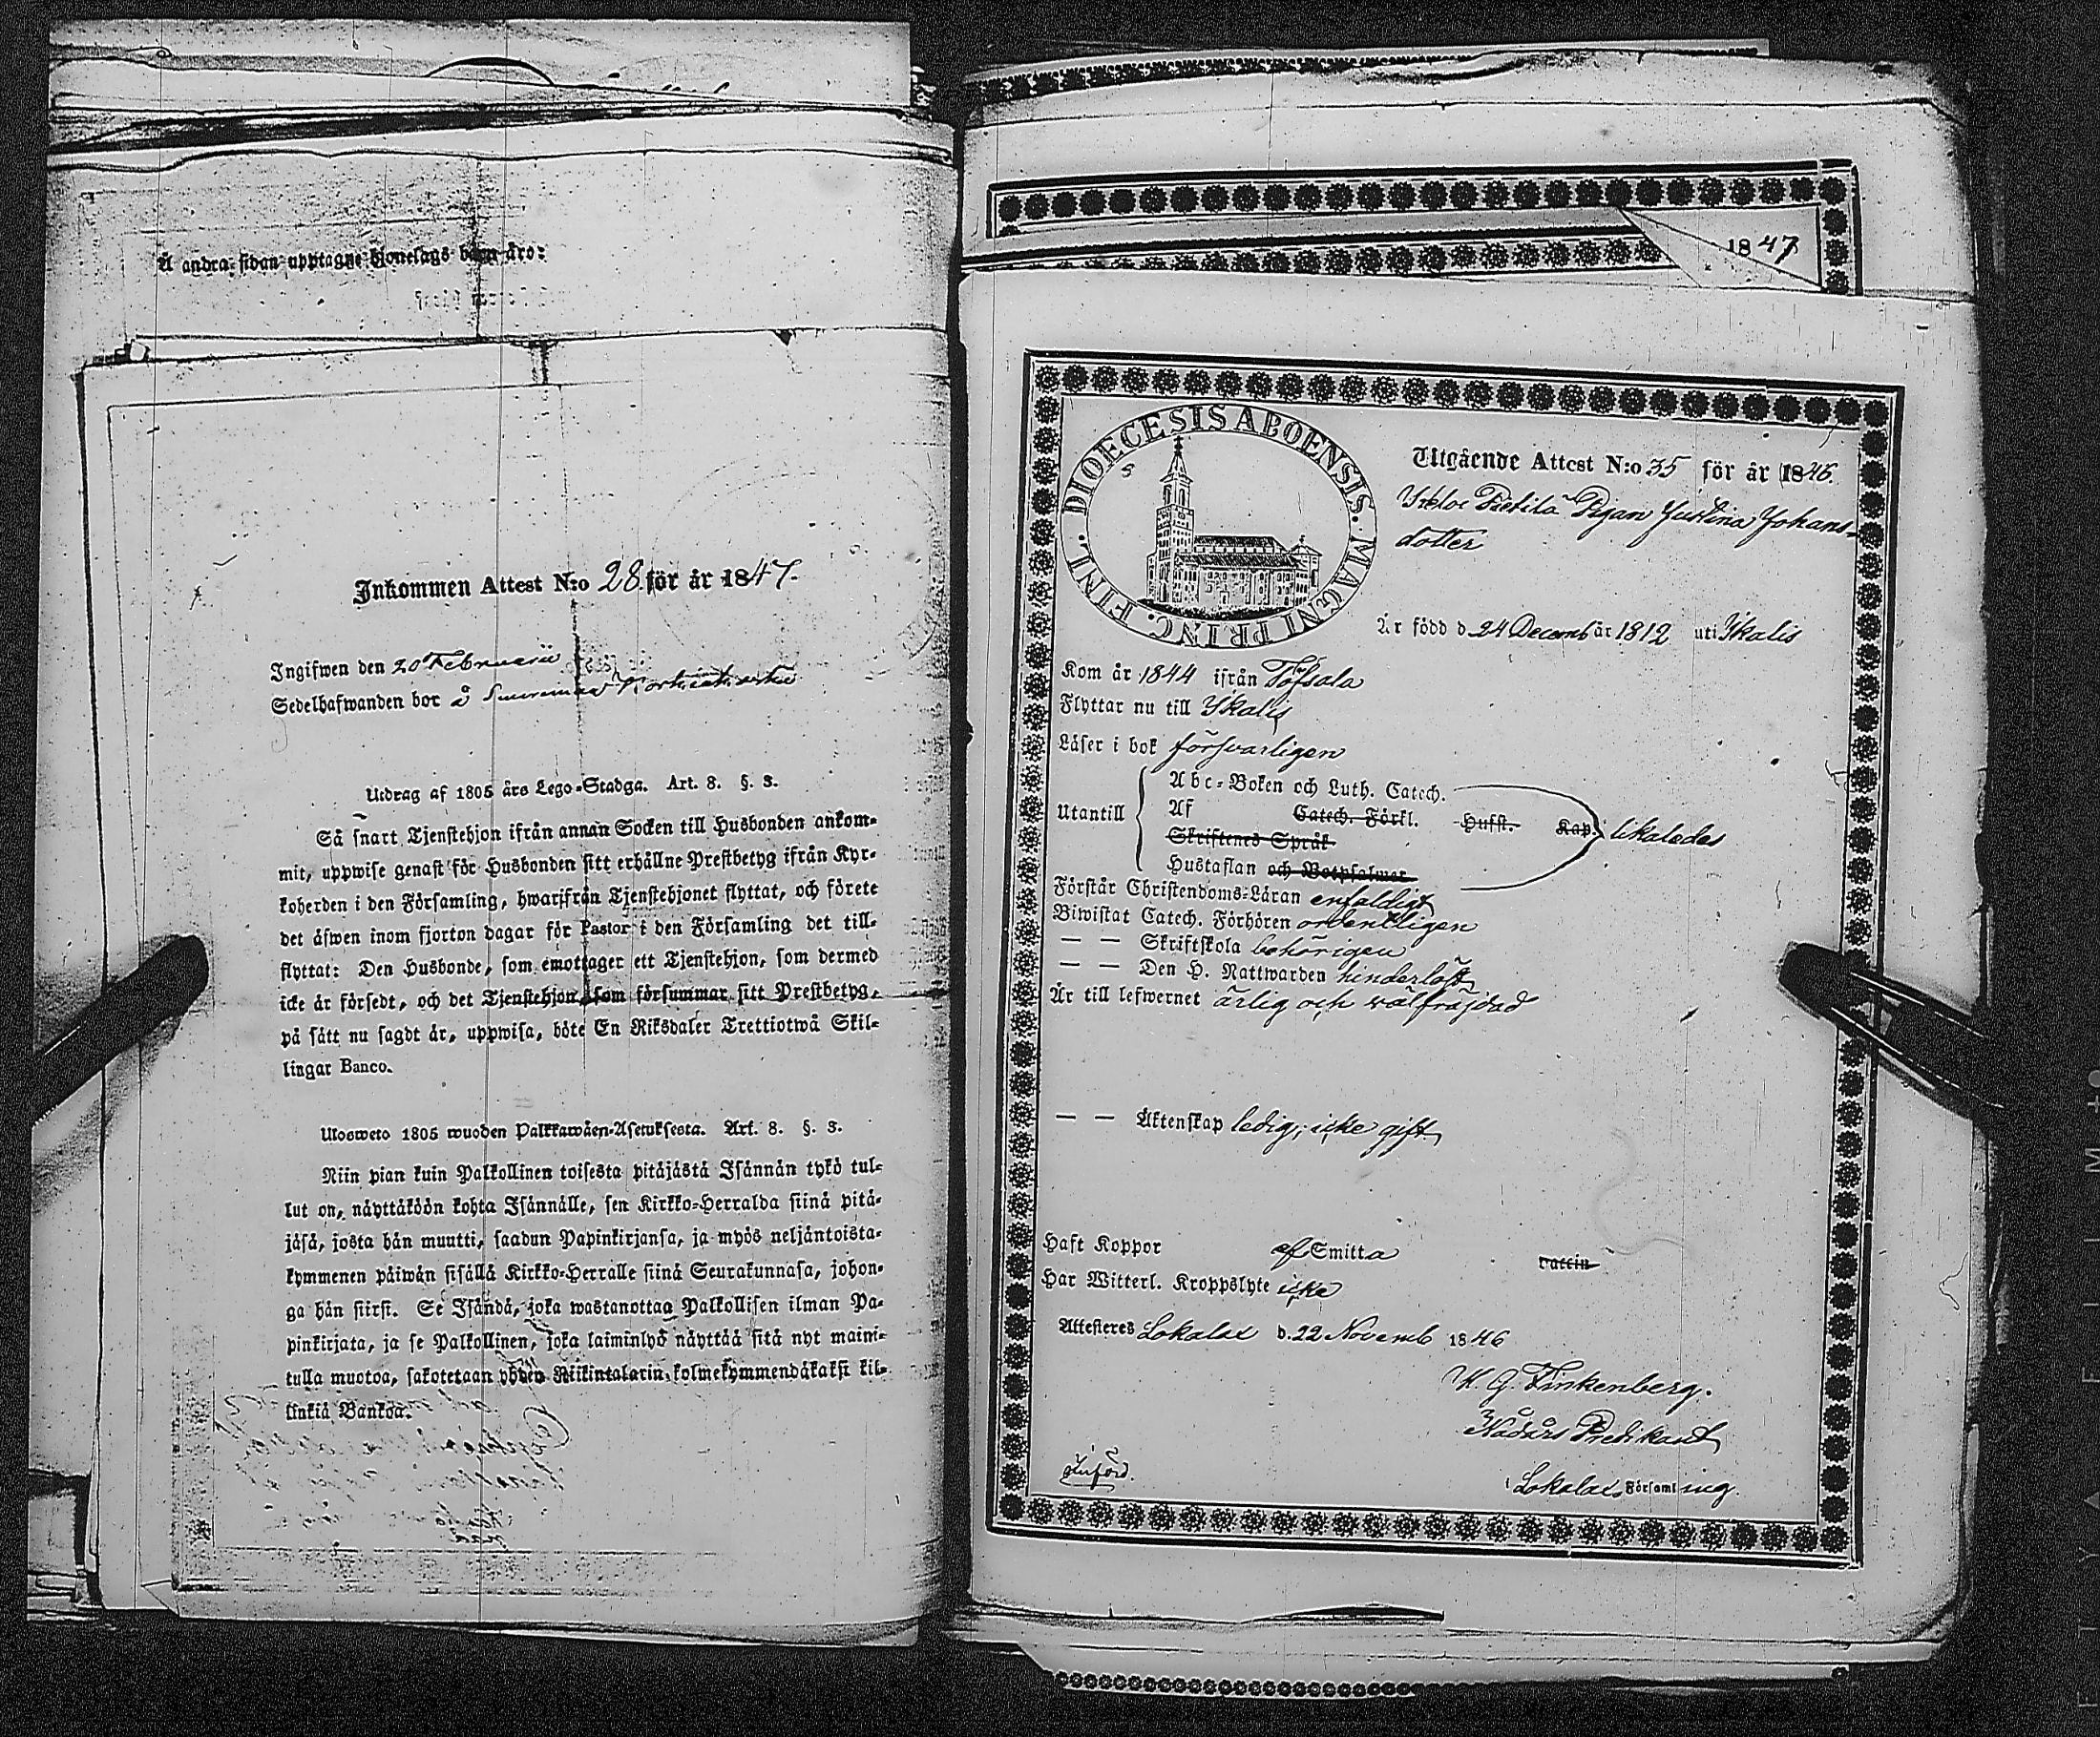 Å andra sidan upptagne Hjonelags barn äro:
Inkommen Attest N:o 28 för år 1847.
Ingifwen den 20 Februarii
Sedelhafwanden bor å
Utdrag af 1805 års Lego-Stadga. Art. 8. §. 3.
Så snart Tjenstehjon ifrån annan Socken till Husbonden ankom-
mit, uppwise genast för Husbonden sitt erhållne Prestbetyg ifrån Kyr-
koherden i den Församling, hwarifrån Tjenstehjonet flyttat, och förete
det äfwen inom fjorton dagar för Pastor i den Församling det till-
flyttat: Den Husbonde, som emottager ett Tjenstehjon, som dermed
icke är försedt, och det Tjenstehjon, som försummar sitt Prestbetyg,
på sätt nu sagdt är, uppwisa, böte En Riksdaler Trettiotwå Skil-
lingar Banco.
Ulosweto 1805 wuoden Palkkawäen-Asetuksesta. Art. 8. §. 3.
Niin pian kuin Palkollinen toisesta pitäjästä Isännän tykö tul-
lut on, näyttäköön kohta Isännälle, sen Kirkko-Herralda siinä pitä-
jäsä, josta hän muutti, saadun Papinkirjansa, ja myös neljäntoista-
kymmenen päiwän sisällä Kirkko-Herralle siinä Seurakunnasa, johon-
ga hän siirsi. Se Isändä, joka wastanottaa Palkollisen ilman Pa-
pinkirjata, ja se Palkollinen, joka laiminlyö näyttää sitä nyt maini-
tulla muotoa, sakotetaan yhden Riikintalarin kolmekymmendäkaksi kil-
linkiä Bankoa.
1847
DIOECESIS ABOENSIS. MAGNI PRINC. FINL.
Utgående Attest N:o 35 för år 1846.
Pietilä Pigan Justina Johans-
dotter
Är född d. 24 Decemb år 1812 uti Ikalis
Kom år 1844 ifrån Töfsala
Flyttar nu till Ikalis
Läser i bok försvarligen
Utantill
Abc-Boken och Luth. Catech.
Af Catech. Förkl. Hufst. Kap. likaledes
Skriftenes Språk
Hustaflan och Botpsalmer
Förstår Christendoms-Läran enfaldigt
Biwistat Catech. Förhören ordentligen
— — Skriftskola behörigen
— — Den H. Nattwarden hinderlöst
Är till lefwernet ärlig och wälfräjdad
— — Äktenskap ledig, icke gift
Haft Koppor af Smitta vaccin
Har Witterl. Kroppslyte icke
Attesteres Lokalax d. 22 Novemb 1846
K. G. Finkenberg.
Nådårs Predikant
i Lokalax Församling.
Införd.